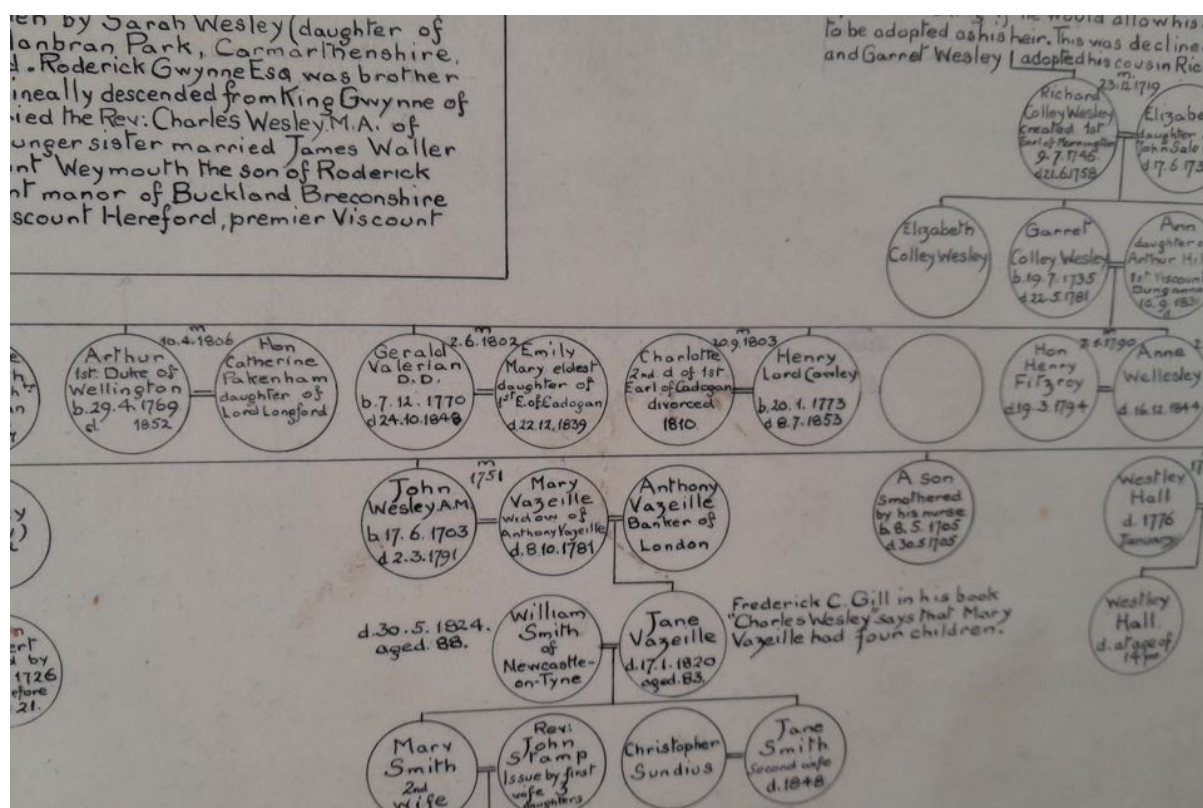 en by Sarah Wesley (daughter of
lanbran Park, Carmarthenshire.
d. Roderick Gwynne Esq was brother
ineally descended from King Gwynne of
ied the Rev: Charles Wesley M.A. of
unger sister married James Waller
nt Weymouth the son of Roderick
nt manor of Buckland Breconshire
scount Hereford, premier Viscount
he would allow his
to be adopted as his heir. This was decline
and Garret Wesley adopted his cousin Ric
m.
23.12.1719
Richard
Colley Wesley
created 1st
Earl of Mornington
9.7.1746.
d21.6.1758
Elizabe
daughter
John Sale
d 17.6.173
Elizabeth
Colley Wesley
Garret
Colley Wesley
b.19.7.1735
d.22.5.1781
Ann
daughter o
Arthur Hi
1st Viscoun
Dungannon
10.9.183
m
10.4.1806
Arthur
1st. Duke of
Wellington
b.29.4.1769
d. 1852
Hon
Catherine
Pakenham
daughter of
Lord Longford
m
2.6.1802
Gerald
Valerian
D.D.
b.7.12.1770
d24.10.1848
Emily
Mary eldest
daughter of
1st E of Cadogan
d.22.12.1839
m
20.9.1803
Charlotte
2nd d of 1st
Earl of Cadogan
divorced
1810.
Henry
Lord Cowley
b.20.1.1773
d 8.7.1853
m
1790
Hon
Henry
Fitzroy
d.19.3.1794
Anne
Wellesley
d.16.12.1844
m
1751
John
Wesley A.M.
b.17.6.1703
d 2.3.1791
Mary
Vazeille
widow of
Anthony Vazeille
d.8.10.1781
Anthony
Vazeille
Banker of
London
A son
smothered
by his nurse
b.8.5.1705
d30.5.1705
Westley
Hall
d.1776
January
d.30.5.1824.
aged.88.
William
Smith
of
Newcastle-
on-Tyne
Jane
Vazeille
d.17.1.1820
aged.83.
Frederick C. Gill in his book
"Charles Wesley" says that Mary
Vazeille had four children.
Westley
Hall.
d. at age of
14 yrs
ert
d by
1726
efore
21.
Mary
Smith
2nd
wife
Rev:
John
Stamp
Issue by first
wife 3
daughters
Christopher
Sundius
Jane
Smith
Second wife
d.1848